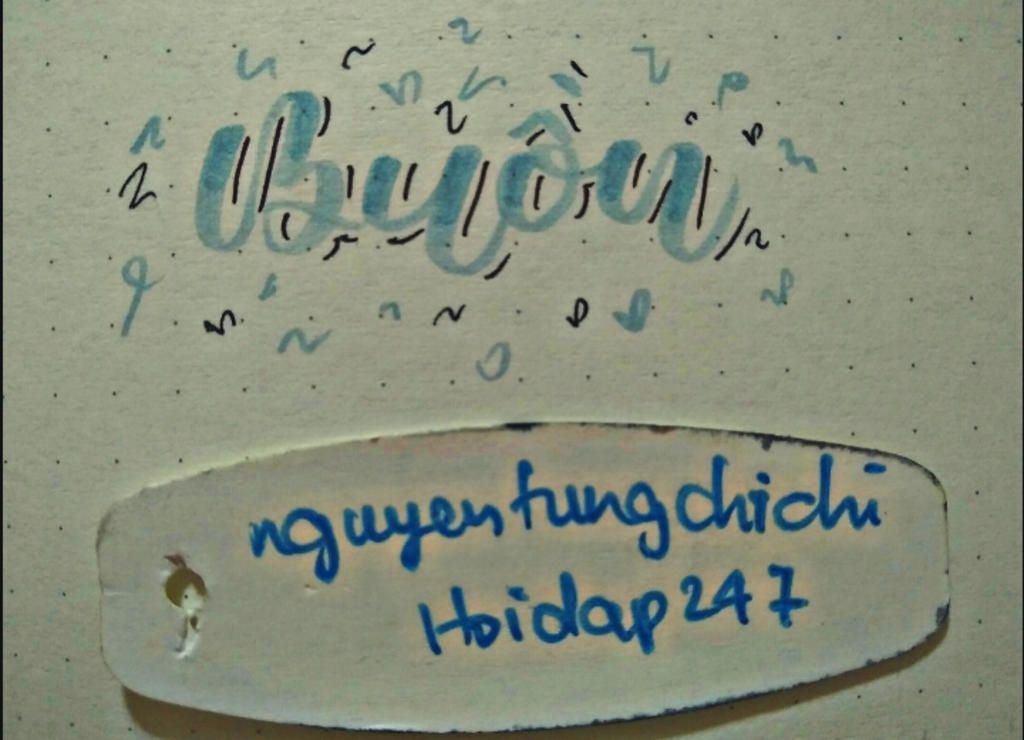 Buồn
nguyentungchichi
Hoidap247